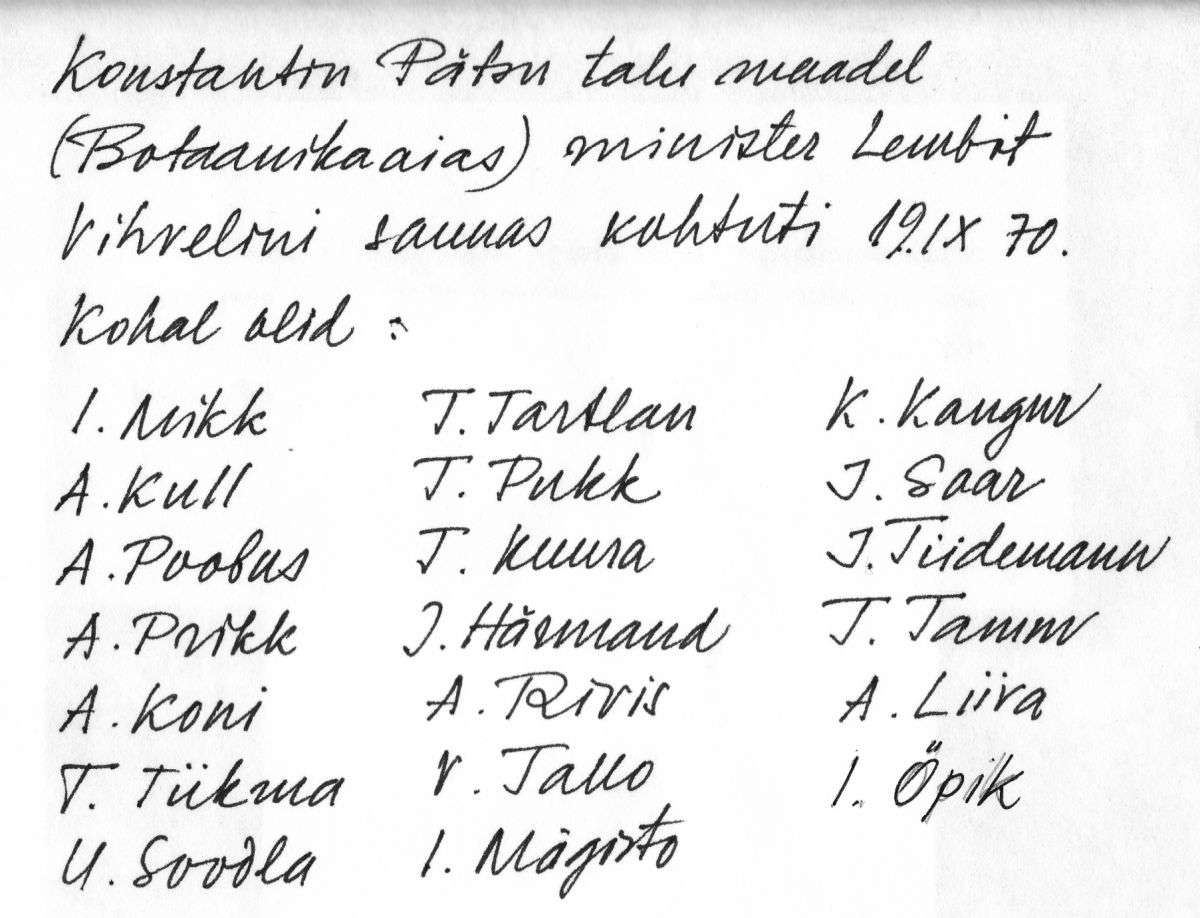 Konstantin Pätsu talu maadel
(Botaanikaaias) minister Lembit
Vihvelini saunas kohtuti 19.IX 70.
Kohal olid :
I. Mikk T. Tartlan K. Kangur
A. Kull T. Pukk J. Saar
A. Poobus T. Kuura J. Tiidemann
A. Prikk J. Härmand T. Tamm
A. Koni A. Rivis A. Liiva
T. Tiikma V. Tallo I. Öpik
U. Soodla I. Mägisto